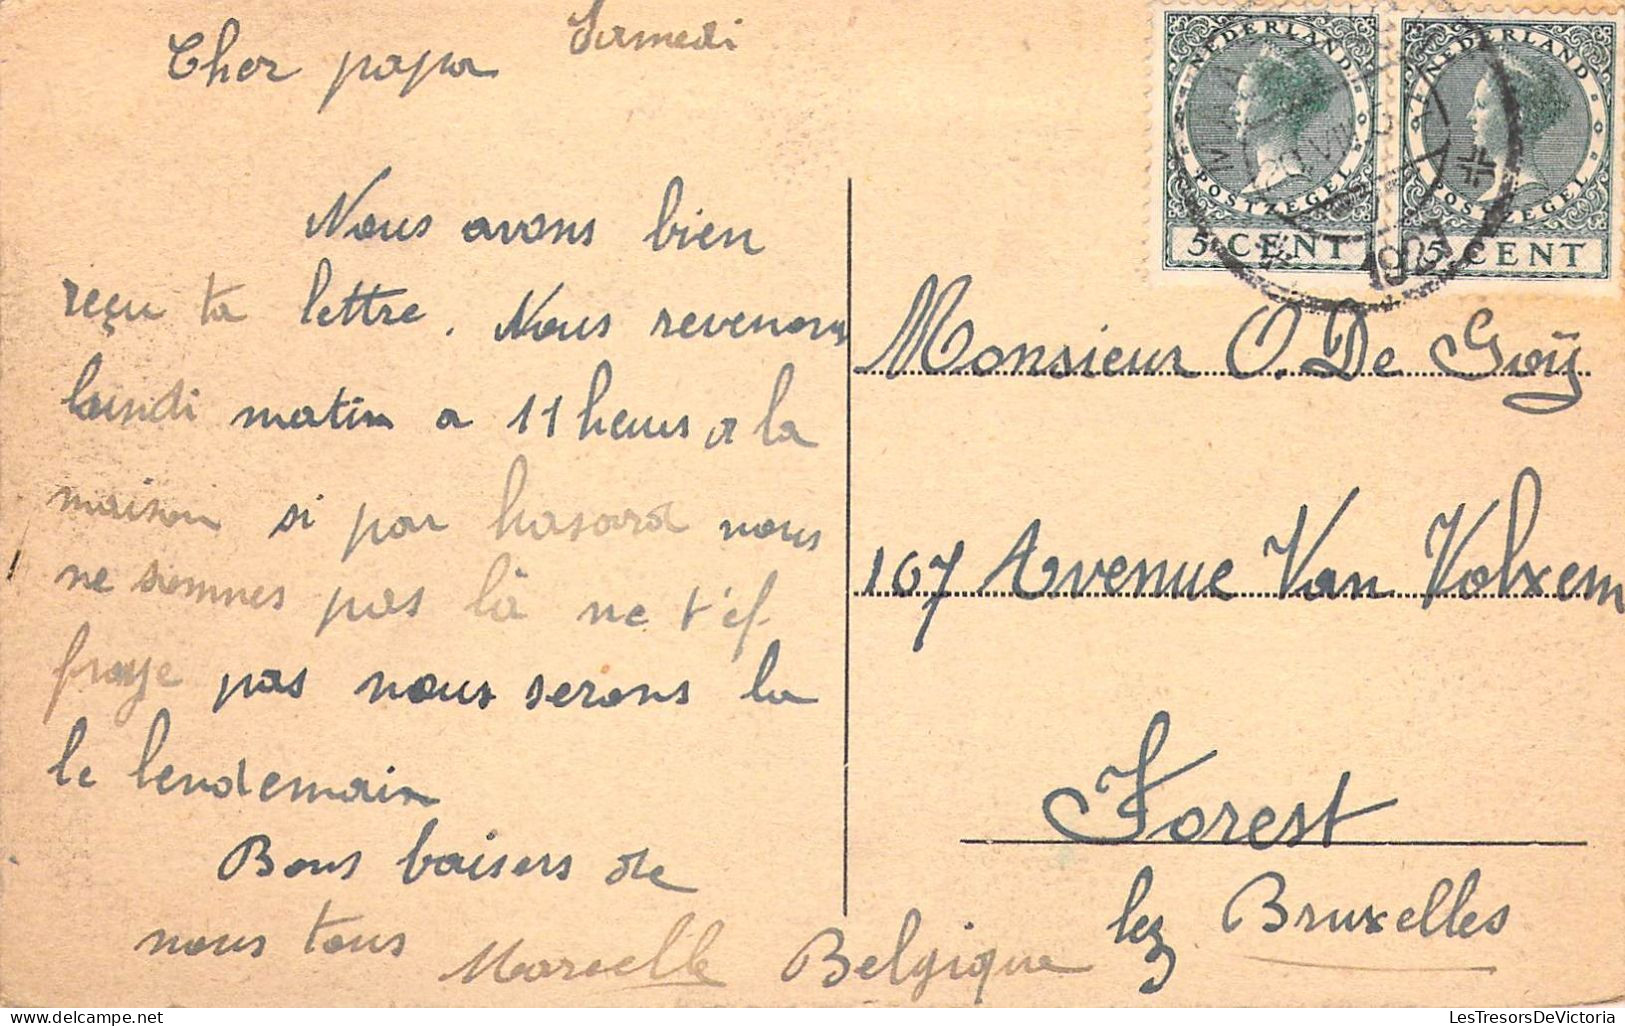 Samedi
Cher papa
Nous avons bien
reçu ta lettre. Nous revenons
lundi matin a 11 heurs a la
maison si par hasard nous
ne sommes pas là ne t'ef
fraye pas nous serons la
le lendemain
Bons baisers de
nous tous Marcelle
NEDERLAND
POSTZEGEL
5 CENT
NEDERLAND
POSTZEGEL
5 CENT
1927
Monsieur O. De Goÿ
167 Avenue Van Volxem
Forest
lez Bruxelles
Belgique
LesTresorsDeVictoria